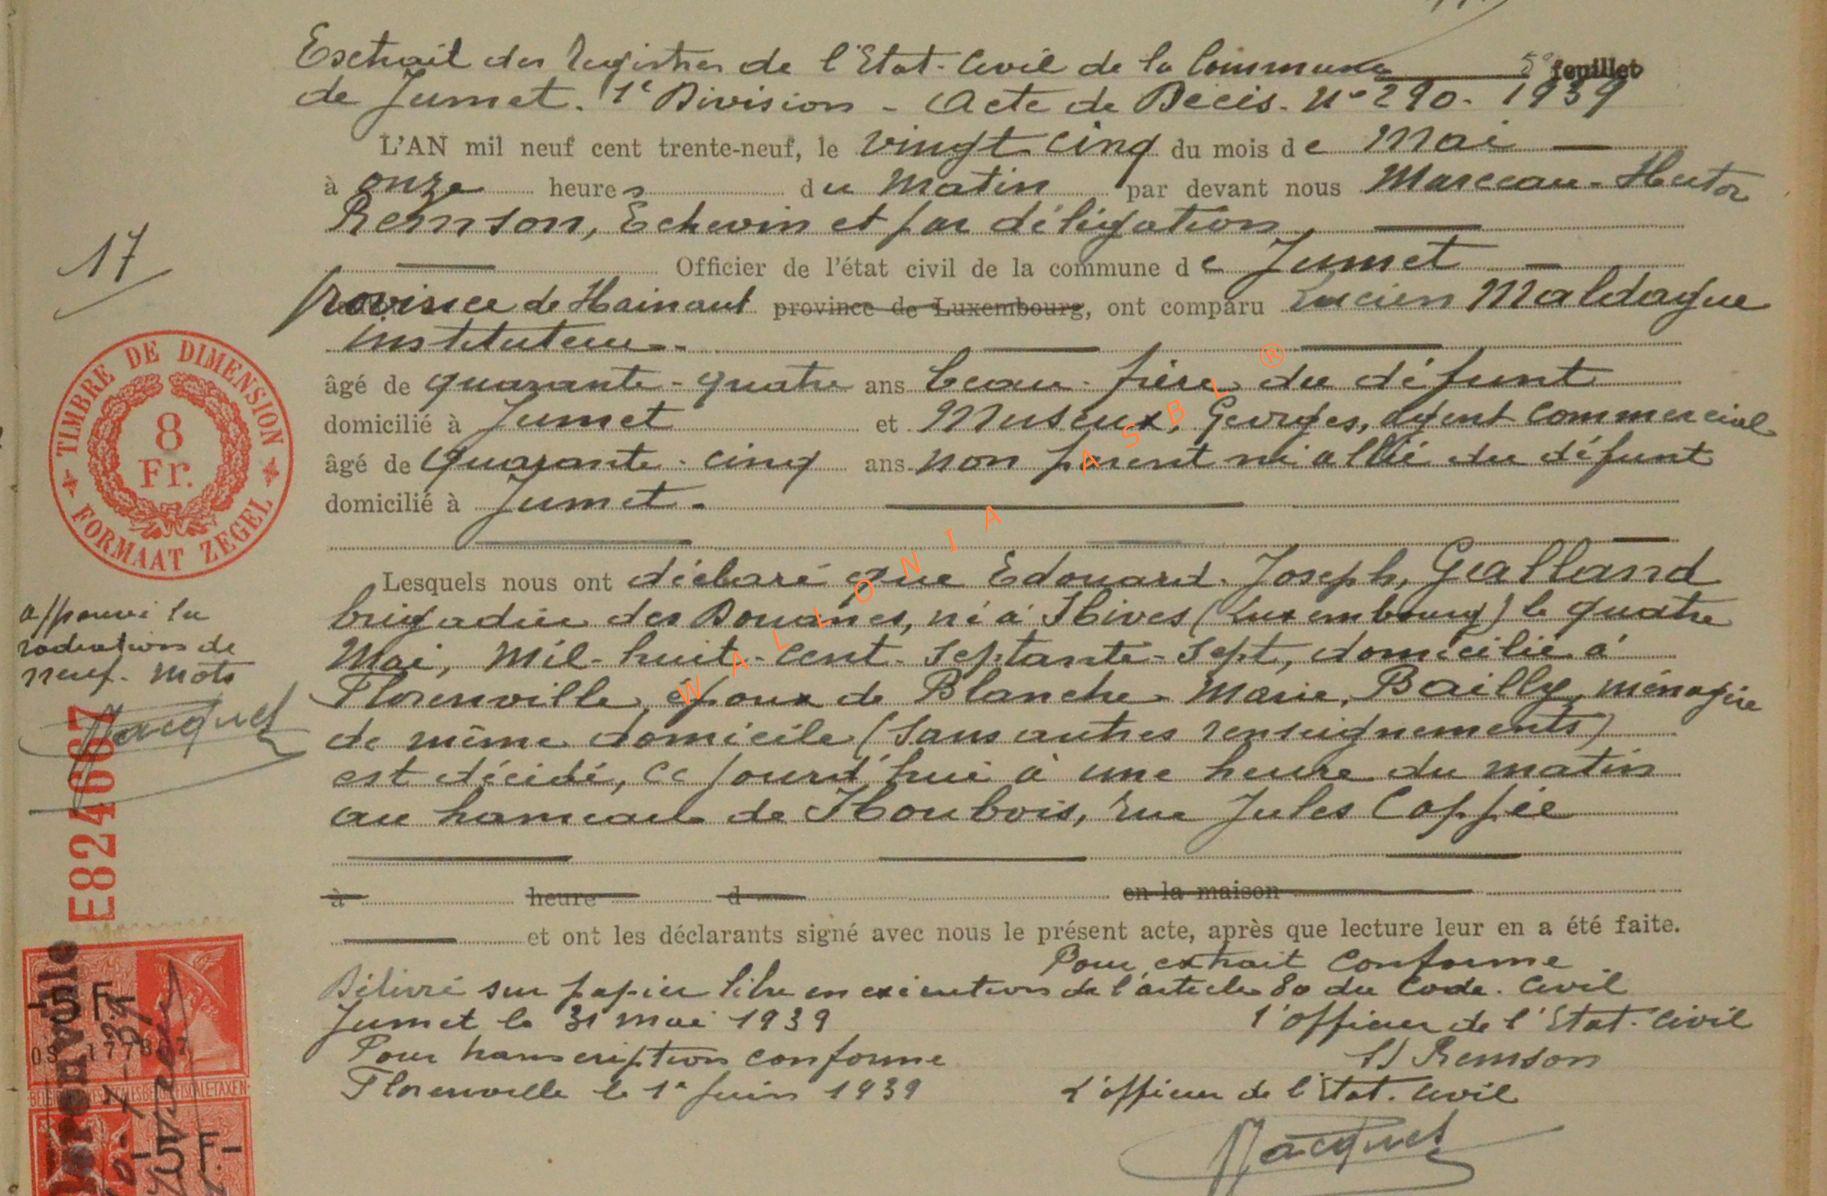 Extrait des Registres de l'Etat-Civil de la Commune 5e feuillet
de Jumet. 1e Division - Acte de Décès. N° 290. 1939
L'AN mil neuf cent trente-neuf, le vingt cinq du mois de Mai
à onze heures du matin par devant nous Marceau-Hector
Remson, Echevin et par délégation
Officier de l'état civil de la commune de Jumet
province de Hainaut province de Luxembourg, ont comparu Lucien Maldague
instituteur.
âgé de quarante-quatre ans beau-frère du défunt
domicilié à Jumet et Museux, Georges, agent commercial
âgé de quarante-cinq ans non parent ni allié du défunt
domicilié à Jumet.
Lesquels nous ont déclaré que Edouard-Joseph, Galland
brigadier des Douanes, né à Hives (Luxembourg) le quatre
Mai, Mil-huit-cent-septante-sept, domicilié à
Florenville, époux de Blanche-Marie, Bailly, ménagère
de même domicile (sans autres renseignements)
est décédé, ce jourd'hui à une heure du matin
au hameau de Houbois, rue Jules Coppée
à heure d en la maison
et ont les déclarants signé avec nous le présent acte, après que lecture leur en a été faite.
Pour extrait conforme
Délivré sur papier libre en exécution de l'article 80 du Code-Civil
Jumet le 31 mai 1939 l'officier de l'Etat-Civil
Pour transcription conforme s/ Remson
Florenville le 1er Juin 1939 L'officier de l'Etat-Civil
Jacquet
17
TIMBRE DE DIMENSION
8
Fr.
FORMAAT ZEGEL
approuvé la
radiation de
neuf mots
Jacquet
E824667
5 F.-
5 F.-
WALLONIA ASBL ®